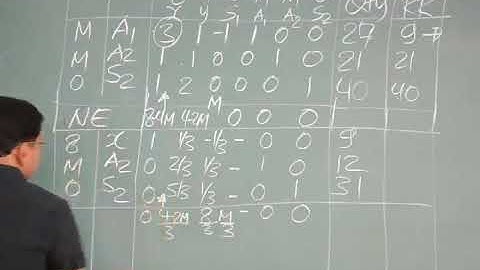 x y S₁ A₁ A₂ S₂ Qty RR
M A₁ ③ 1 -1 1 0 0 27 9→
M A₂ 1 1 0 0 1 0 21 21
0 S₂ 1 2 0 0 0 1 40 40
NE 8-4M 4-2M M 0 0 0
8 x 1 1/3 -1/3 - 0 0 9
M A₂ 0 2/3 1/3 - 1 0 12
0 S₂ 0 5/3 1/3 - 0 1 31
0 4-2M/3 8/3 M/3 - 0 0